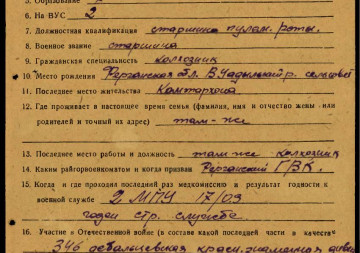 6. На ВУС 2
7. Должностная квалификация старшина пулем. роты.
8. Военное звание старшина
9. Гражданская специальность колхозник
10. Место рождения Ферганская обл. сельсовет
11. Последнее место жительства
12. Где проживает в настоящее время семья (фамилия, имя и отчество жены или
родителей и точный их адрес) там-же
13. Последнее место работы и должность там-же колхозник
14. Каким райгорвоенкоматом и когда призван Ферганский ГВК.
15. Когда и где проходил последний раз медкомиссию и результат годности к
военной службе 2 МПП 17/09
годен стр. службе
16. Участие в Отечественной войне (в составе какой последней части и в качестве
346 дебальцевская краснознаменная